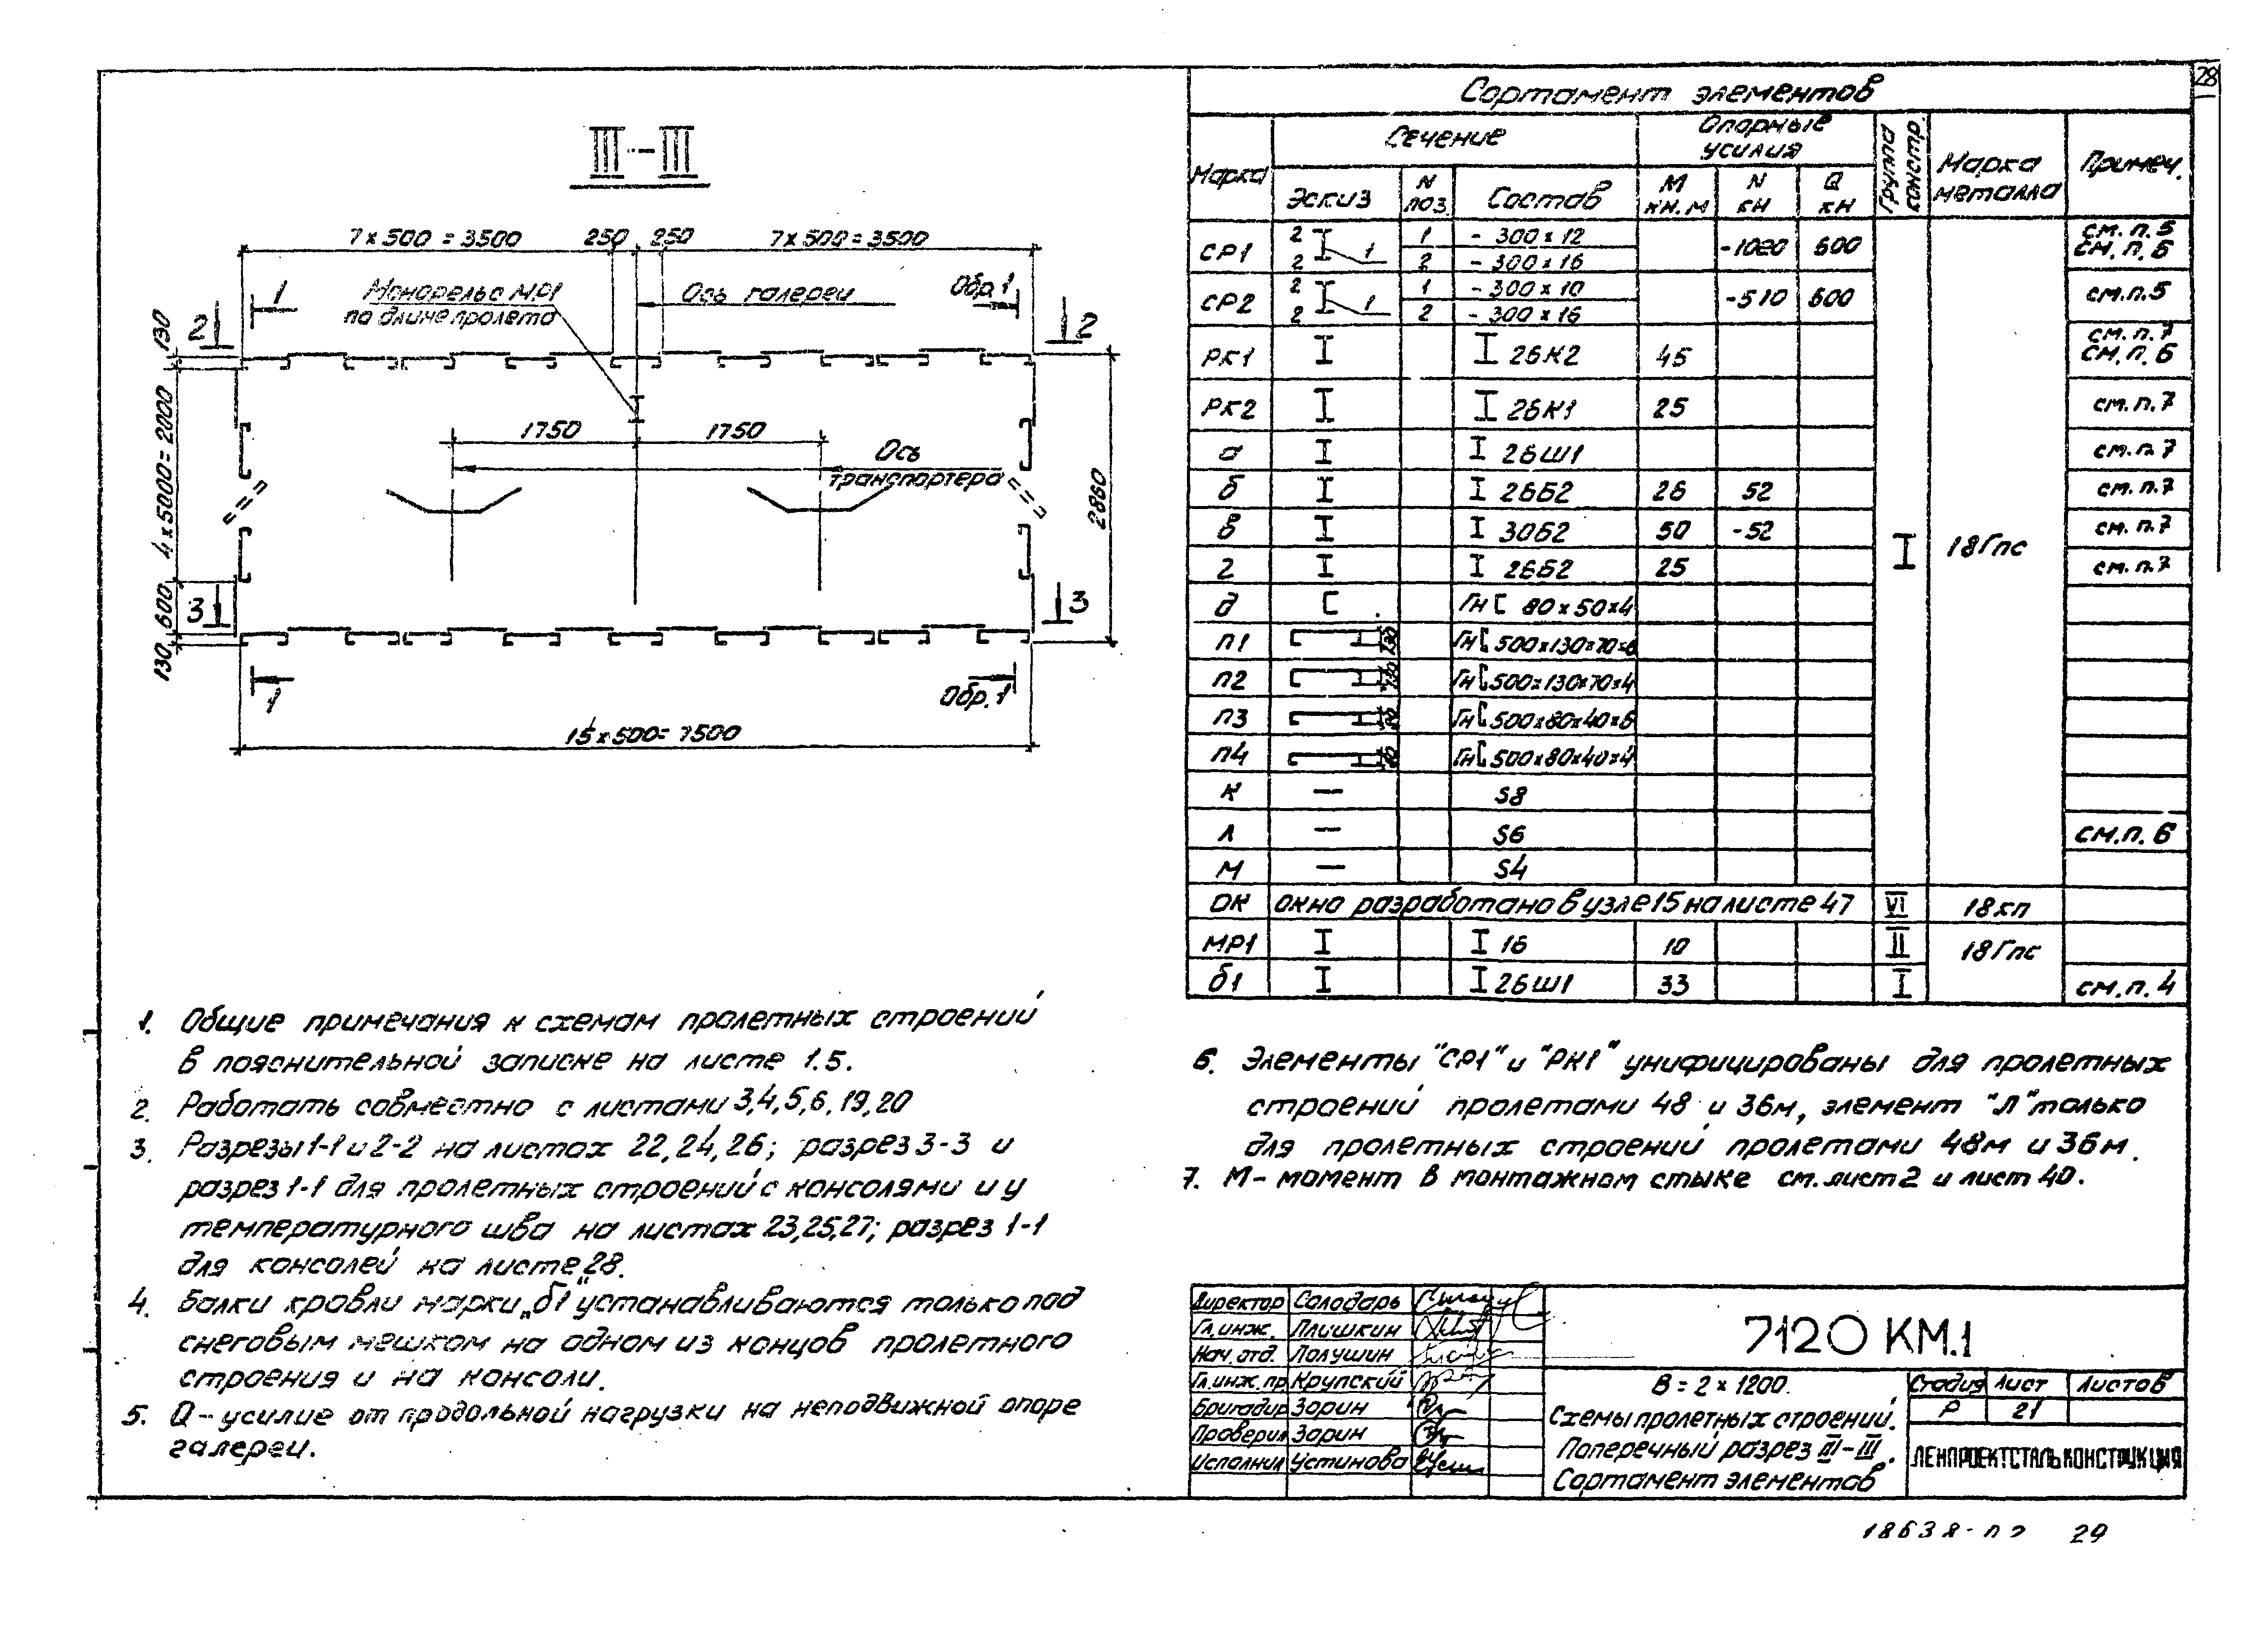 28
III-III
7×500=3500 250 250 7×500=3500
1
Монорельс МР1
по длине пролета
Ось галереи
Обр.1
2 2
130
1750 1750
Ось
транспортера
4×5000=2000
2860
600
3 3
130
1
Обр.1
15×500=7500
1. Общие примечания к схемам пролетных строений
в пояснительной записке на листе 1.5.
2. Работать совместно с листами 3,4,5,6,19,20
3. Разрезы 1-1 и 2-2 на листах 22,24,26; разрез 3-3 и
разрез 1-1 для пролетных строений с консолями и у
температурного шва на листах 23,25,27; разрез 1-1
для консолей на листе 28.
4. Балки кровли марки „б1" устанавливаются только под
снеговым мешком на одном из концов пролетного
строения и на консоли.
5. Q-усилие от продольной нагрузки на неподвижной опоре
галереи.
Сортамент элементов
Марка Сечение Опорные усилия Группа констр. Марка металла Примеч.
Эскиз N поз. Состав М кн.м N кн Q кн
СР1 2 1 2 1 - 300×12 600 см.п.5
2 - 300×16 см.п.6
СР2 2 1 2 1 - 300×10 -510 600 см.п.5
2 - 300×16
РК1 I I 26К2 45 см.п.7
см.п.6
РК2 I I 26К1 25 см.п.7
а I I 26Ш1 см.п.7
б I I 26Б2 26 52 см.п.7
в I I 30Б2 50 -52 см.п.7
I 18Гпс
г I I 26Б2 25 см.п.7
д [ Гн [ 80×50×4
п1 Гн [ 500×130×70×6
п2 Гн [ 500×130×70×4
п3 Гн [ 500×80×40×6
п4 Гн [ 500×80×40×4
к — S8
л — S6 см.п.6
м — S4
ОК окно разработано в узле 15 на листе 47 VI 18кп
МР1 I I 16 10 II 18Гпс
б1 I I 26Ш1 33 I см.п.4
6. Элементы "СР1" и "РК1" унифицированы для пролетных
строений пролетами 48 и 36м, элемент "Л" только
для пролетных строений пролетами 48м и 36м.
7. М-момент в монтажном стыке см. лист 2 и лист 40.
Директор Солодарь
Гл.инж. Плишкин
Нач.отд. Полушин
Гл.инж.пр. Крупский
Бригадир Зорин
Проверил Зорин
Исполнил Устинова
7120 КМ.1
В=2×1200.
Схемы пролетных строений.
Поперечный разрез III-III.
Сортамент элементов
Стадия Лист Листов
Р 21
ЛЕНПРОЕКТСТАЛЬКОНСТРУКЦИЯ
29